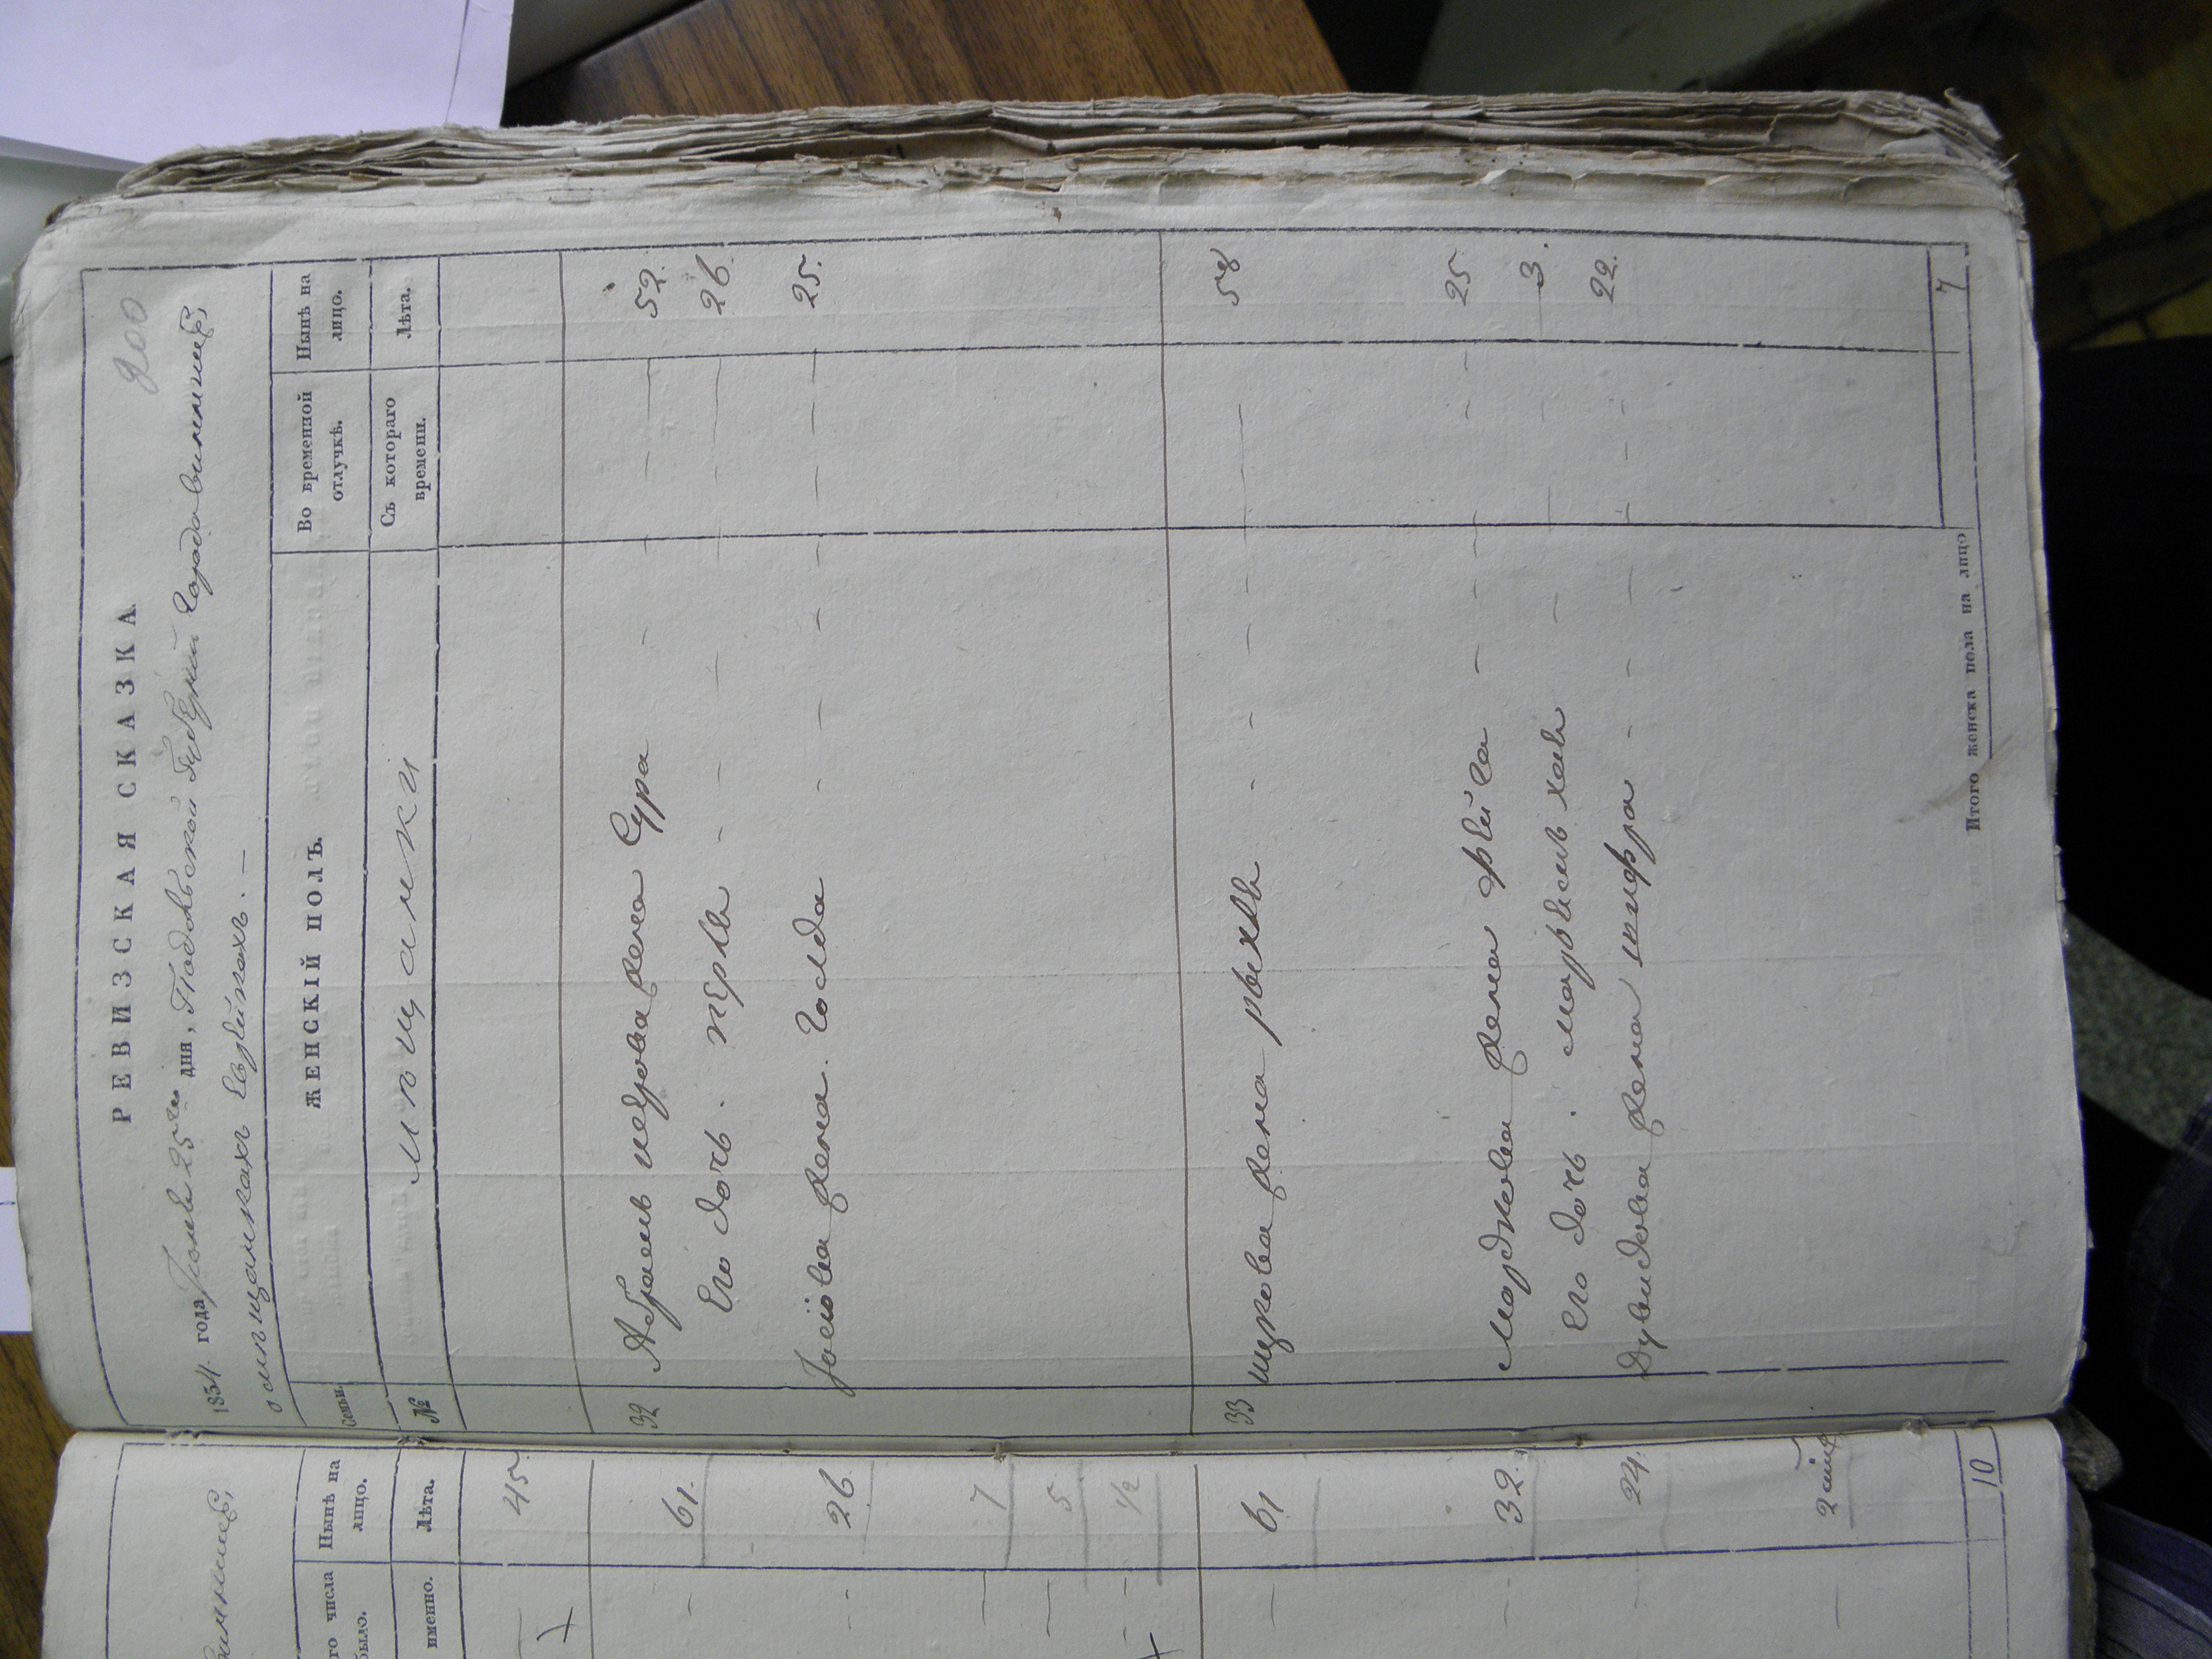 200
РЕВИЗСКАЯ СКАЗКА.
1854. года Іюня 25го дня, Подольской Губерніи Города Винницы,
о мѣщанкахъ Еврейкахъ. —
Семьи. ЖЕНСКІЙ ПОЛЪ. Во временной отлучкѣ. Нынѣ на лицо.
№ мѣщанки Съ котораго времени. Лѣта.
32 жена Сура 52.
Его дочь. перля 26.
жена. Голда 25.
33 жена рыхля 58
Мордкова жена фейга 25
Его дочь. хая 3.
Дувидова жена шифра 22.
Итого женска пола на лицо 7
Винницы,
го числа было. Нынѣ на лицо.
именно. Лѣта.
45.
61.
26
7
5
1/2
61
32.
24.
10